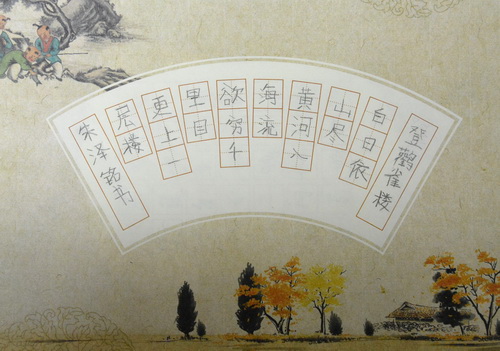 登鹳雀楼
白日依
山尽
黄河入
海流
欲穷千
里目
更上一
层楼
朱泽铭书